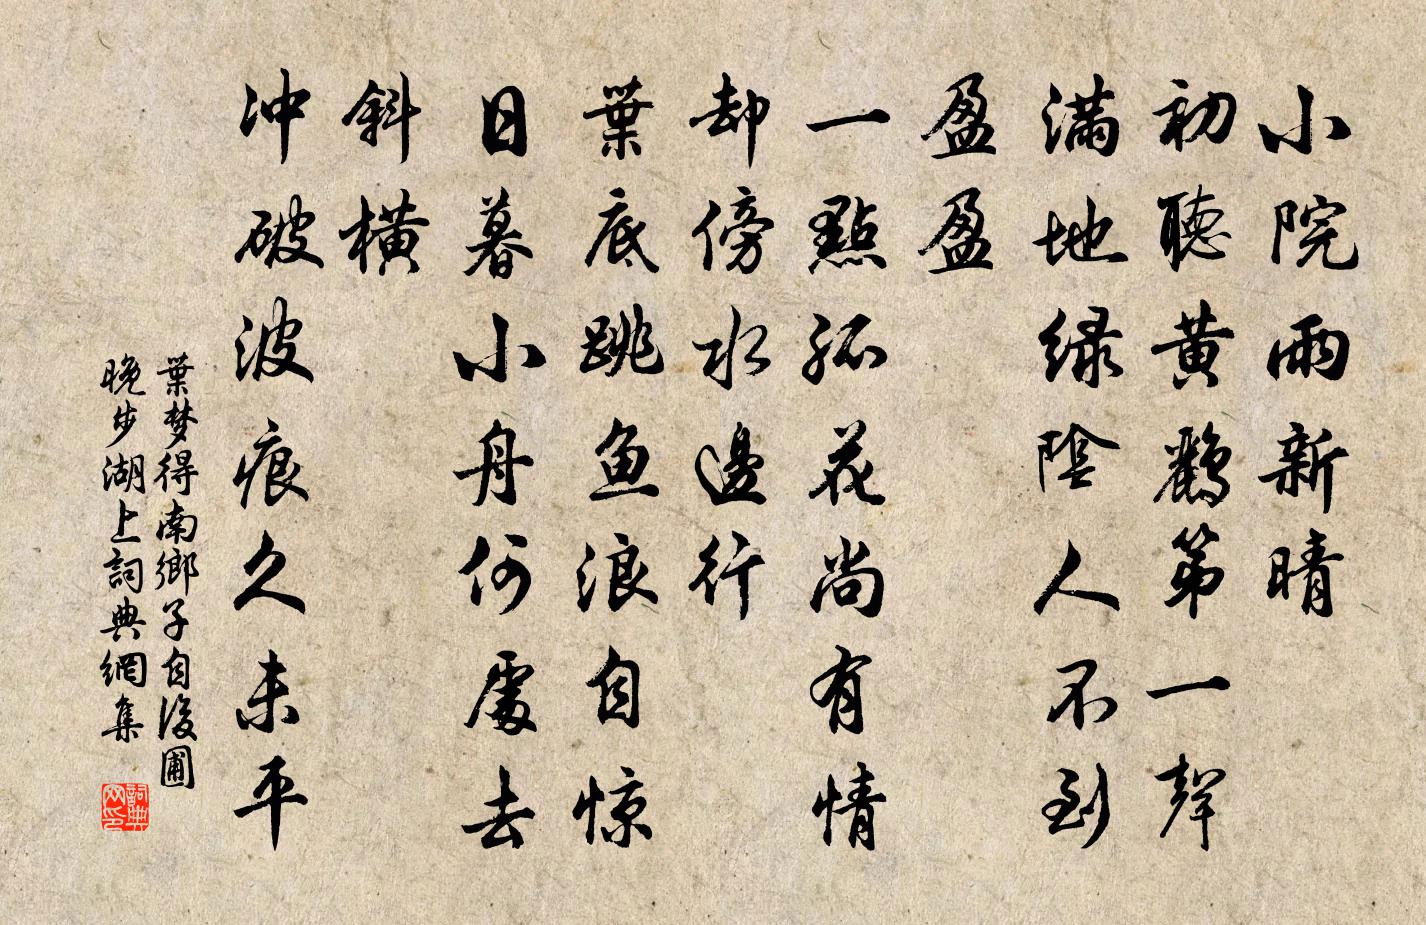 小院雨新晴
初聽黃鸝第一聲
满地绿陰人不到
盈盈
一點孤花尚有情
却傍水邊行
葉底跳魚浪自惊
日暮小舟何處去
斜橫
冲破波痕久未平
葉梦得南鄉子自後圃
晚步湖上詞典網集
詞典
网印